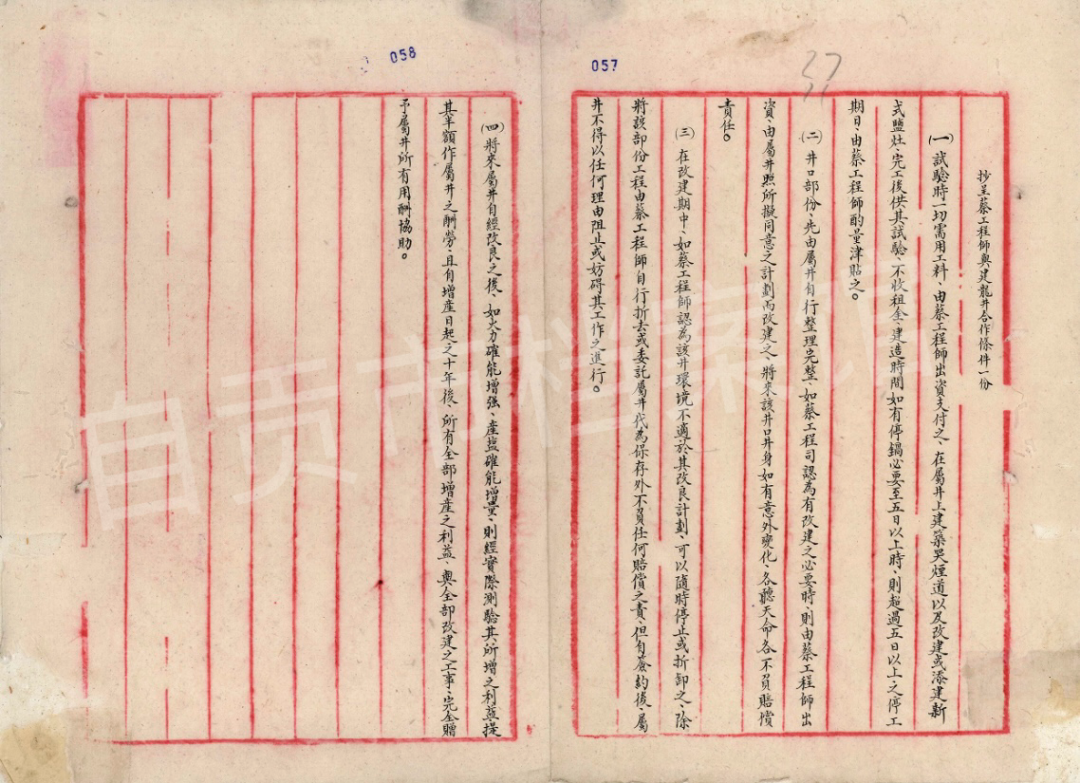 058
057
27
抄呈蔡工程師與建龍井合作條件一份
㈠試驗時一切需用工料、由蔡工程師出資支付之、在屬井上建築吴煙道以及改建或添建新
式鹽灶、完工後供其試驗、不收租金、建造時間如有停鍋必要至五日以上時、則超過五日以上之停工
期日、由蔡工程師酌量津貼之。
㈡井口部份、先由屬井自行整理完整、如蔡工程司認為有改建之必要時、則由蔡工程師出
資、由屬井照所擬同意之計劃而改建之、將來該井口井身如有意外變化、各聽天命各不負賠償
責任。
㈢在改建期中、如蔡工程師認為該井環境不適於其改良計劃、可以隨時停止或折卸之、除
將該部份工程由蔡工程師自行折去或委託屬井代為保存外不負任何賠償之責、但自簽約後、屬
井不得以任何理由阻止或妨碍其工作之進行。
㈣將來屬井自經改良之後、如火力確能增強、產鹽確能增量、則經實際測驗其所增之利益提
其半額作屬井之酬勞、且自增產日起之十年後、所有全部增產之利益、與全部改建之工事、完全贈
予屬井所有用酬協助。
自贡市档案馆